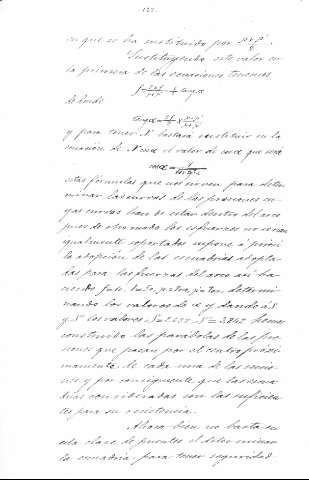 en que se ha sustituido por
Sustituyendo este valor en
la primera de las ecuaciones tenemos
de donde
y para tener N bastará sustituir en la
ecuación de N cos α el valor de cos α que será
estas fórmulas que nos sirven para deter
minar las curvas de las presiones cu-
yas curvas han de estar dentro del arco
pues de otro modo los esfuerzos no serían
igualmente soportados supone á priori
la adopción de las escuadrías adopta-
das para las fuerzas del arco así ha-
ciendo determi-
nando los valores de α y dando á S
y N los valores hemos
construido las parábolas de las pre-
siones que pasan por el centro próxi-
mamente de cada una de las seccio-
nes y por consiguiente que las escua-
drías consideradas son las suficien-
tes para su resistencia.
Ahora bien no basta en
esta clase de puentes el determinar
la escuadría para tener seguridad